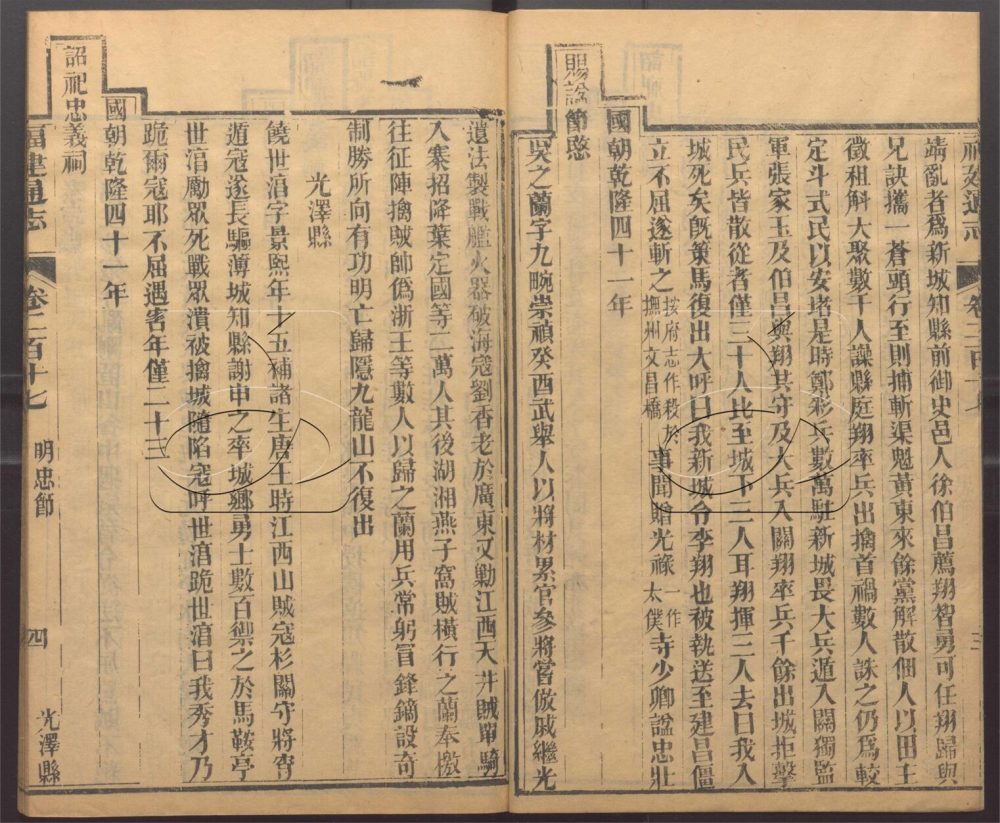 福建通志 卷二百十七 三
靖亂者爲新城知縣前御史邑人徐伯昌薦翔智勇可任翔歸與
兄訣攜一蒼頭行至則捕斬渠魁黃東來餘黨解散佃人以田主
徵租斛大聚數千人譟縣庭翔率兵出擒首禍數人誅之仍爲較
定斗式民以安堵是時鄭彩兵數萬駐新城畏大兵遁入關獨監
軍張家玉及伯昌與翔共守及大兵入關翔率兵千餘出城拒擊
民兵皆散從者僅三十人比至城下三人耳翔揮三人去曰我入
城死矣旣策馬復出大呼曰我新城令李翔也被執送至建昌僵
立不屈遂斬之按府志作殺於撫州文昌橋事聞贈光祿一作太僕寺少卿諡忠壯
國朝乾隆四十一年
賜諡節愍
吳之蘭字九畹崇禎癸酉武舉人以將材累官參將嘗倣戚繼光
遺法製戰艦火器破海寇劉香老於廣東又勦江西天井賊單騎
入寨招降葉定國等二萬人其後湖湘燕子窩賊橫行之蘭奉檄
往征陣擒賊帥僞浙王等數人以歸之蘭用兵常躬冒鋒鏑設奇
制勝所向有功明亡歸隱九龍山不復出
光澤縣
饒世滆字景熙年十五補諸生唐王時江西山賊寇杉關守將宵
遁寇遂長驅薄城知縣謝申之率城鄉勇士數百禦之於馬鞍亭
世滆勵眾死戰眾潰被擒城隨陷寇呼世滆跪世滆曰我秀才乃
跪爾寇耶不屈遇害年僅二十三
國朝乾隆四十一年
詔祀忠義祠
福建通志 卷二百十七 明忠節 四 光澤縣